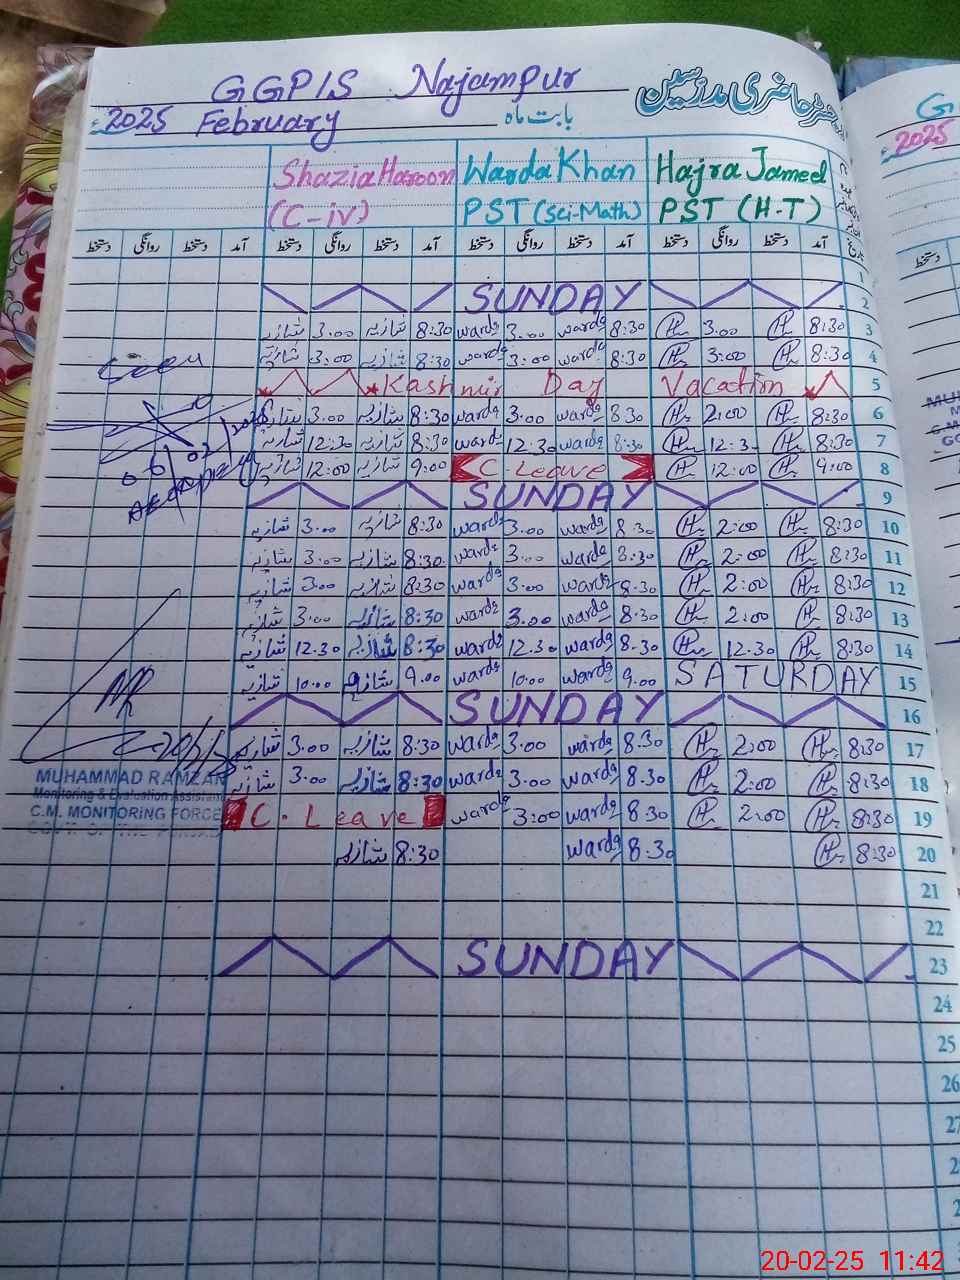 GGPIS Najampur
رجسٹر حاضری مدرسین
2025ء February بابت ماہ
Shazia Haroon Warda Khan Hajra Jameel
(C-iv) PST (Sci-Math) PST (H-T)
آمد دستخط روانگی دستخط آمد دستخط روانگی دستخط آمد دستخط روانگی دستخط آمد دستخط روانگی دستخط
1
SUNDAY 2
شازیہ 3.00 شازیہ 8:30 warda 3.00 warda 8:30 H 3.00 H 8:30 3
شازیہ 3:00 شازیہ 8:30 warda 3:00 warda 8:30 H 3:00 H 8:30 4
Seen
Kashmir Day Vacation 5
شازیہ 3.00 شازیہ 8:30 warda 3.00 warda 8:30 H 2:00 H 8:30 6
شازیہ 12:30 شازیہ 8:30 warda 12.30 warda 8:30 H 12:3. H 8:30 7
شازیہ 12:00 شازیہ 9:00 C-Leave H 12:00 H 9:00 8
SUNDAY 9
شازیہ 3.00 شازیہ 8:30 warda 3.00 warda 8:30 H 2:00 H 8:30 10
شازیہ 3.00 شازیہ 8:30 warda 3.00 warda 8:30 H 2:00 H 8:30 11
شازیہ 3.00 شازیہ 8:30 warda 3.00 warda 8.30 H 2:00 H 8:30 12
شازیہ 3.00 شازیہ 8:30 warda 3.00 warda 8:30 H 2:00 H 8:30 13
شازیہ 12.30 شازیہ 8:30 warda 12.30 warda 8.30 H 12.30 H 8:30 14
شازیہ 10.00 شازیہ 9.00 warda 10.00 warda 9.00 SATURDAY 15
SUNDAY 16
شازیہ 3.00 شازیہ 8:30 warda 3.00 warda 8:30 H 2:00 H 8:30 17
شازیہ 3.00 شازیہ 8:30 warda 3.00 warda 8:30 H 2:00 H 8:30 18
MUHAMMAD RAMZAN
Monitoring & Evaluation Assistant
C.M. MONITORING FORCE
C. Leave warda 3:00 warda 8:30 H 2:00 H 8:30 19
شازیہ 8:30 warda 8:30 H 8:30 20
21
22
SUNDAY 23
24
25
26
27
2025
دستخط
20-02-25 11:42